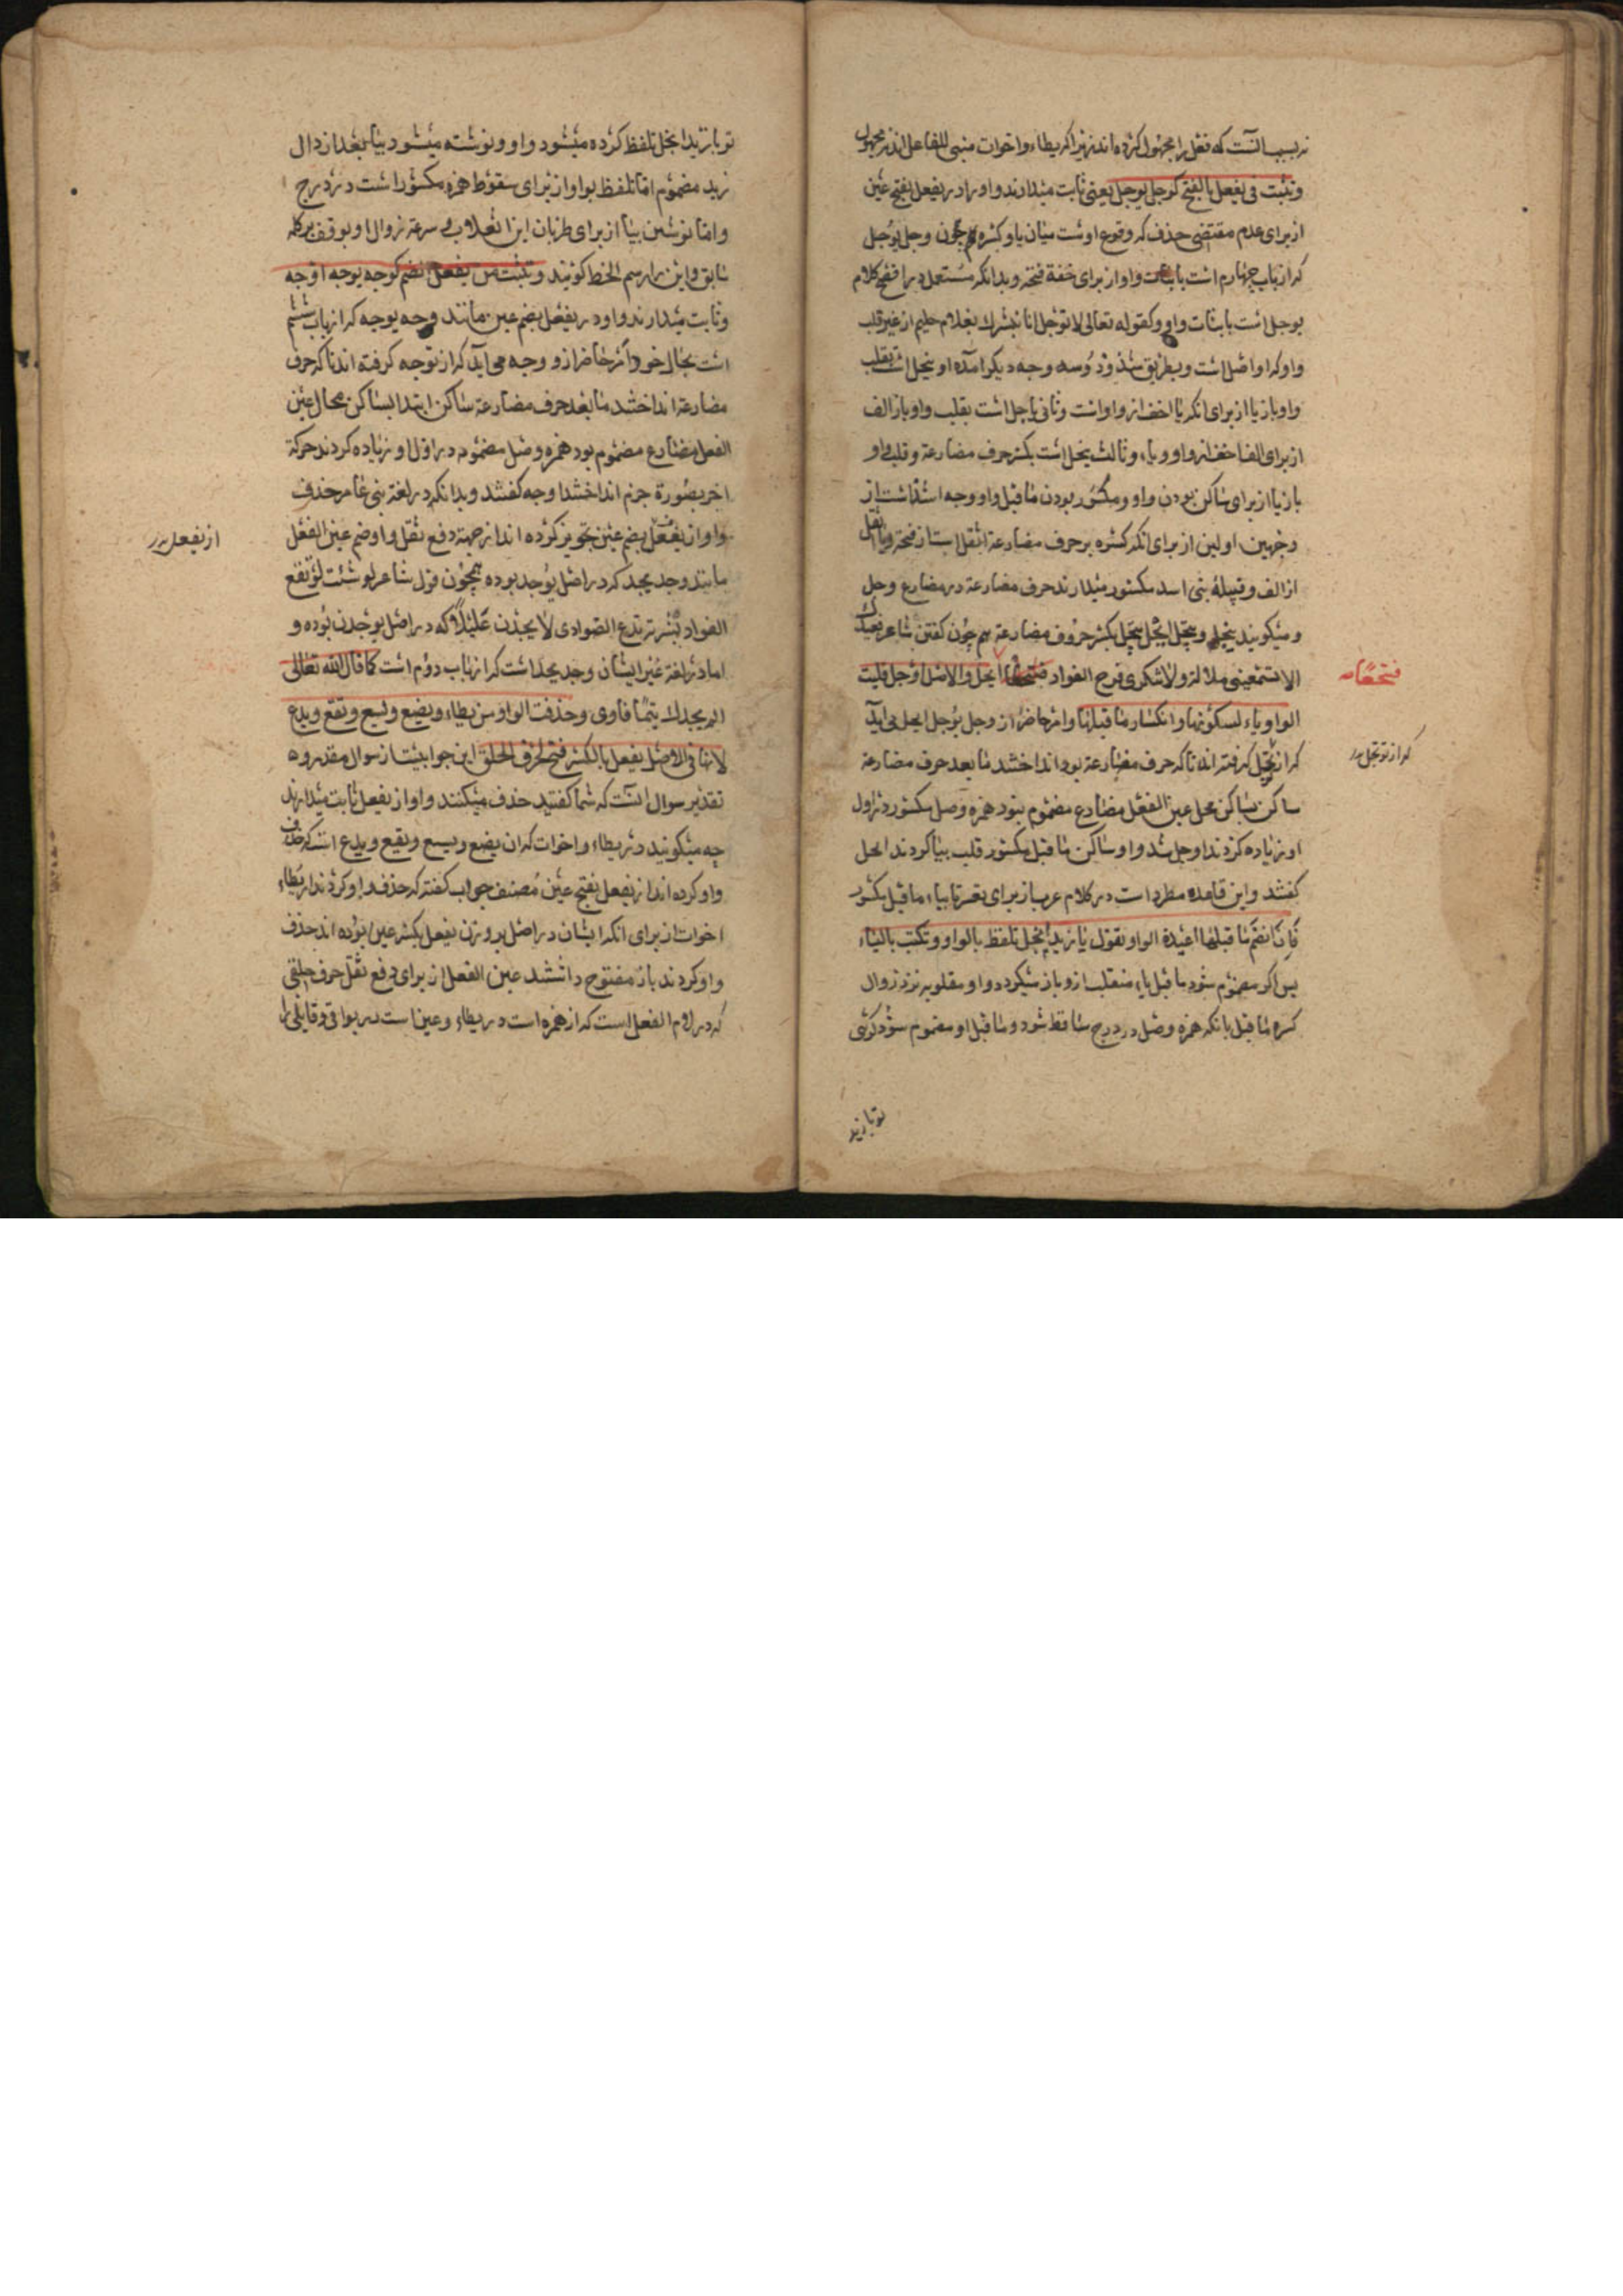 نه بسبب آنست که فعل را مجهول کرده اند زیرا که یطاء واخوات مبنی للفاعل اند نه مجهول
وتثبت فی یفعل بالفتح کوجل یوجل یعنی ثابت میدارند واو را در یفعل بفتح عین
از برای عدم مقتضی حذف که وقوع اوست میان یا وکسره هم چون وجل یوجل
که از باب چهارم است باثبات واو از برای خفة فتحه وبدانکه مستعمل در افصح کلام
یوجل است باثبات واو وکقوله تعالی لا توجل انا نبشرک بغلام حلیم از غیر قلب
واو که او اصل است وبطریق شذوذ وسه وجه دیکر آمده او ییجل است بقلب
واو باز یا از برای آنکه یا اخف از واو است وثانی یاجل است بقلب واو باز الف
از برای الف اخف از واو ویاء وثالث ییجل است بکسر حرف مضارعة وقلب واو
باز یا از برای ساکن بودن واو ومکسور بودن ماقبل واو وجه اشذ است از
وجهین اولین از برای آنکه کسره بر حرف مضارعة اثقل است از فتحه ویا اثقل
از الف وقبیلهٔ بنی اسد مکسور میدارند حرف مضارعة در مضارع وجل
ومیکویند ییجل وتیجل ایجل نیجل بکسر حروف مضارعة هم چون کفتن شاعر
الا تسمعینی ملالة ولا تنکری قرح الفواد ایجل والاصل اوجل قلبت
الواو یاء لسکونها وانکسار ماقبلها وامر حاضر از وجل یوجل ایجل می آید
که از توجل کرفته اند تا که حرف مضارعة بود انداختند مابعد حرف مضارعة
ساکن شد ساکن محل عین الفعل مضارع مضموم نبود همزه وصل مکسور در اول
او زیاده کردند اوجل شد واو ساکن ماقبل مکسور قلب بیا کردند ایجل
کفتند واین قاعده مطرد است در کلام عرب از برای تعسر تا بیاء ماقبل مکسور
فان انضم ماقبلها اعیدة الواو تقول یا زید ایجل تلفظ بالواو وتکتب بالیاء
پس اکر مضموم شود ماقبل یاء منقلب از و باز میکردد واو مقلوبه نزد زوال
کسره ماقبل بانکه همزه وصل در درج ساقط شود وماقبل او مضموم شود کوئی
فتحها
که از توجل در
تو یا زید
تو یا زید ایجل تلفظ کرده میشود واو ونوشته میشود بیا بعد از دال
زید مضموم اما تلفظ بواو از برای سقوط همزه مکسور است در درج
واما نوشتن بیا از برای طریان این انقلاب وسرعة زوال او بوقف بر کله
سابق واین را رسم الخط کویند وتثبت من یفعل بضم کوجه یوجه اوجه
وثابت میدارند واو در یفعل بضم عین مانند وجه یوجه که از باب ششم
است بحال خود امر حاضر از وجه می آید که از توجه کرفته اند تا که حرف
مضارعة انداختند مابعد حرف مضارعة ساکن ابتدا بساکن محال عین
الفعل مضارع مضموم بود همزه وصل مضموم در اول او زیاده کردند حرکة
اخر بصورة جزم انداختند اوجه کفتند وبدانکه در لغة بنی عامر حذف
واو از یفعل بضم عین تجویز کرده اند از جهة دفع ثقل واو ضم عین الفعل
مانند وجد یجد که در اصل یوجد بوده همچون قول شاعر لو شئت لو نقع
الفواد بشربة تدع الصوادی لا یجدن غلیلاً که در اصل یوجدن بوده و
اما در لغة غیر ایشان وجد یجد است که از باب دوم است کما قال الله تعالی
الم یجدک یتیما فاوی وحذفت الواو من یطاء ویضع ویسع ویقع ویدع
لانها فی الاصل یفعل بالکسر فتح لحرف الحلق این جوابیست از سوال مقدر و
تقدیر سوال آنست که شما کفتید حذف میکنند واو از یفعل ثابت میدارند
چه میکویید در یطاء واخوات که ان یضع ویسع ویقع ویدع است که حذف
واو کرده اند از یفعل بفتح عین مصنف جواب کفته که حذف واو کردند از یطاء
اخوات از برای آنکه ایشان در اصل بر وزن یفعل بکسر عین بوده اند حذف
واو کردند باز مفتوح داشتند عین الفعل از برای دفع ثقل حرف حلقی
که در لام الفعل است که از همزه است در یطاء وعین است در بواقی وقایلی را
از یفعل در